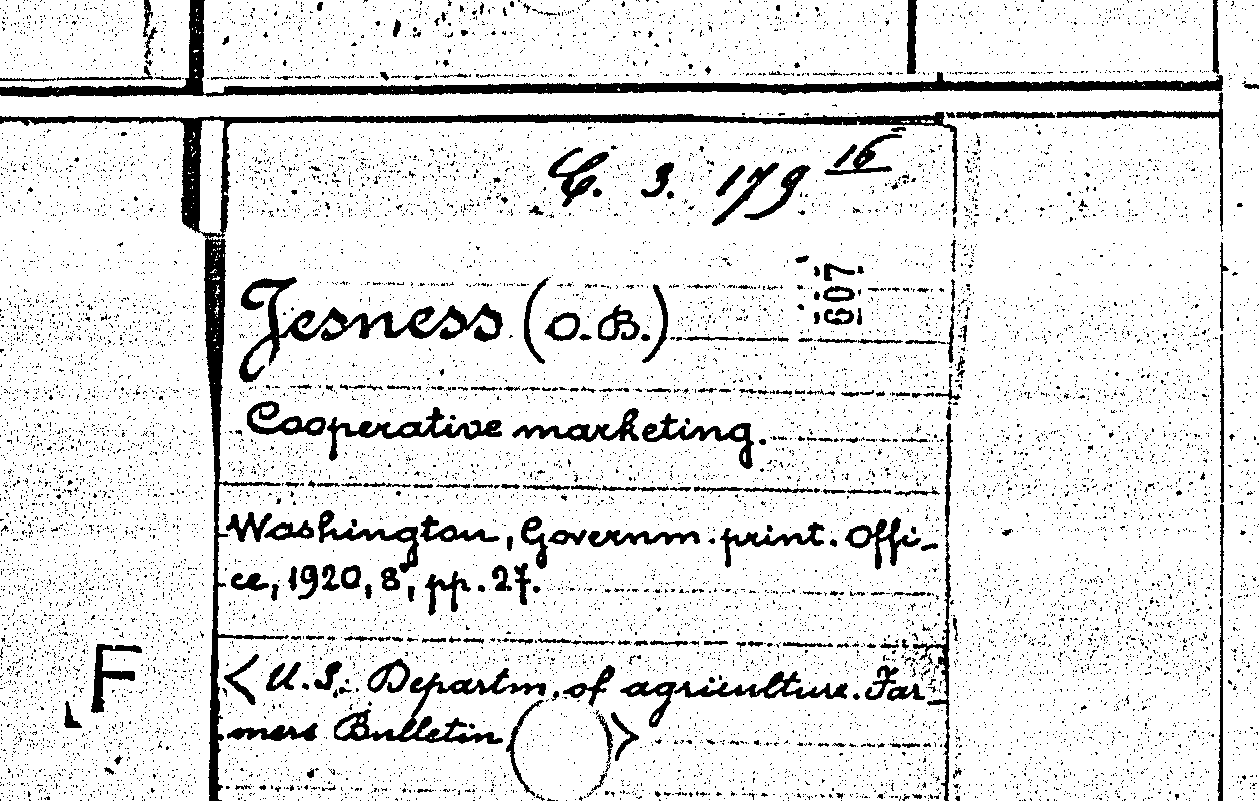 C. 3. 179 16
607
Jesness (O.B.)
Cooperative marketing.
Washington, Governm. print. Offi-
ce, 1920, 8°, pp. 27.
< U.S.: Departm. of agriculture. Far-
mers Bulletin, >
F